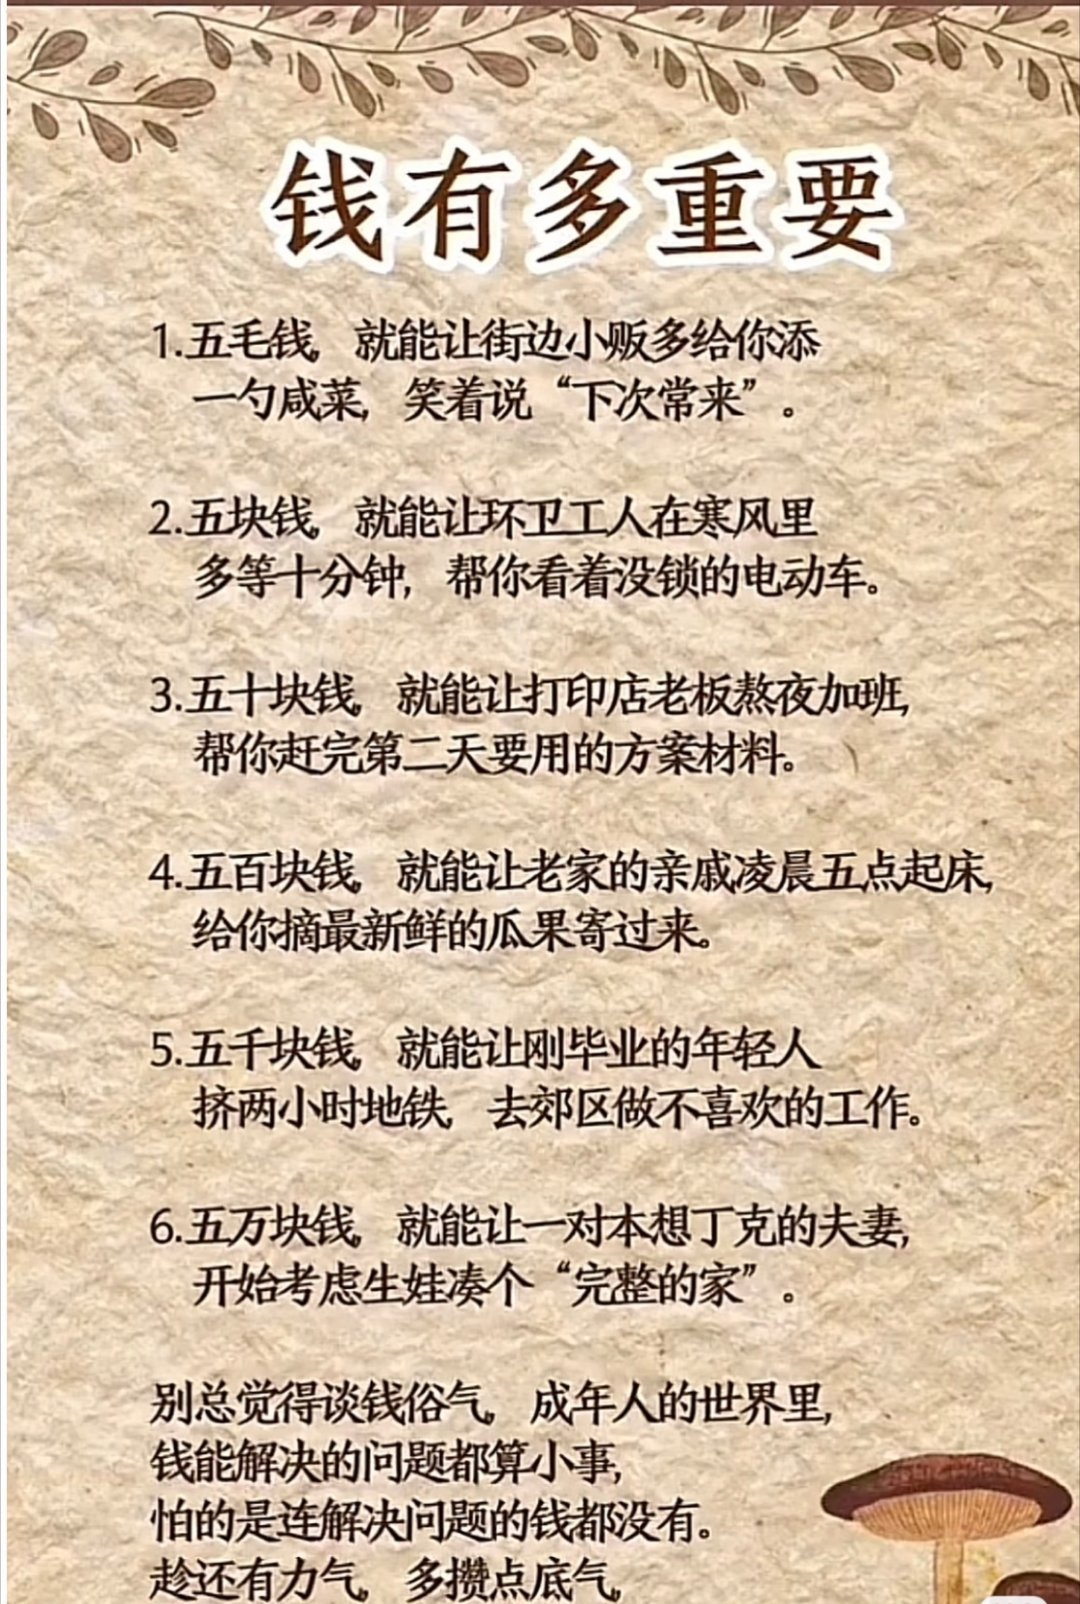 钱有多重要
1.五毛钱。就能让街边小贩多给你添
一勺咸菜，笑着说“下次常来”。
2.五块钱。就能让环卫工人在寒风里
多等十分钟，帮你看着没锁的电动车。
3.五十块钱。就能让打印店老板熬夜加班，
帮你赶完第二天要用的方案材料。
4.五百块钱。就能让老家的亲戚凌晨五点起床，
给你摘最新鲜的瓜果寄过来。
5.五千块钱。就能让刚毕业的年轻人
挤两小时地铁，去郊区做不喜欢的工作。
6.五万块钱。就能让一对本想丁克的夫妻，
开始考虑生娃凑个“完整的家”。
别总觉得谈钱俗气。成年人的世界里，
钱能解决的问题都算小事，
怕的是连解决问题的钱都没有。
趁还有力气。多攒点底气。